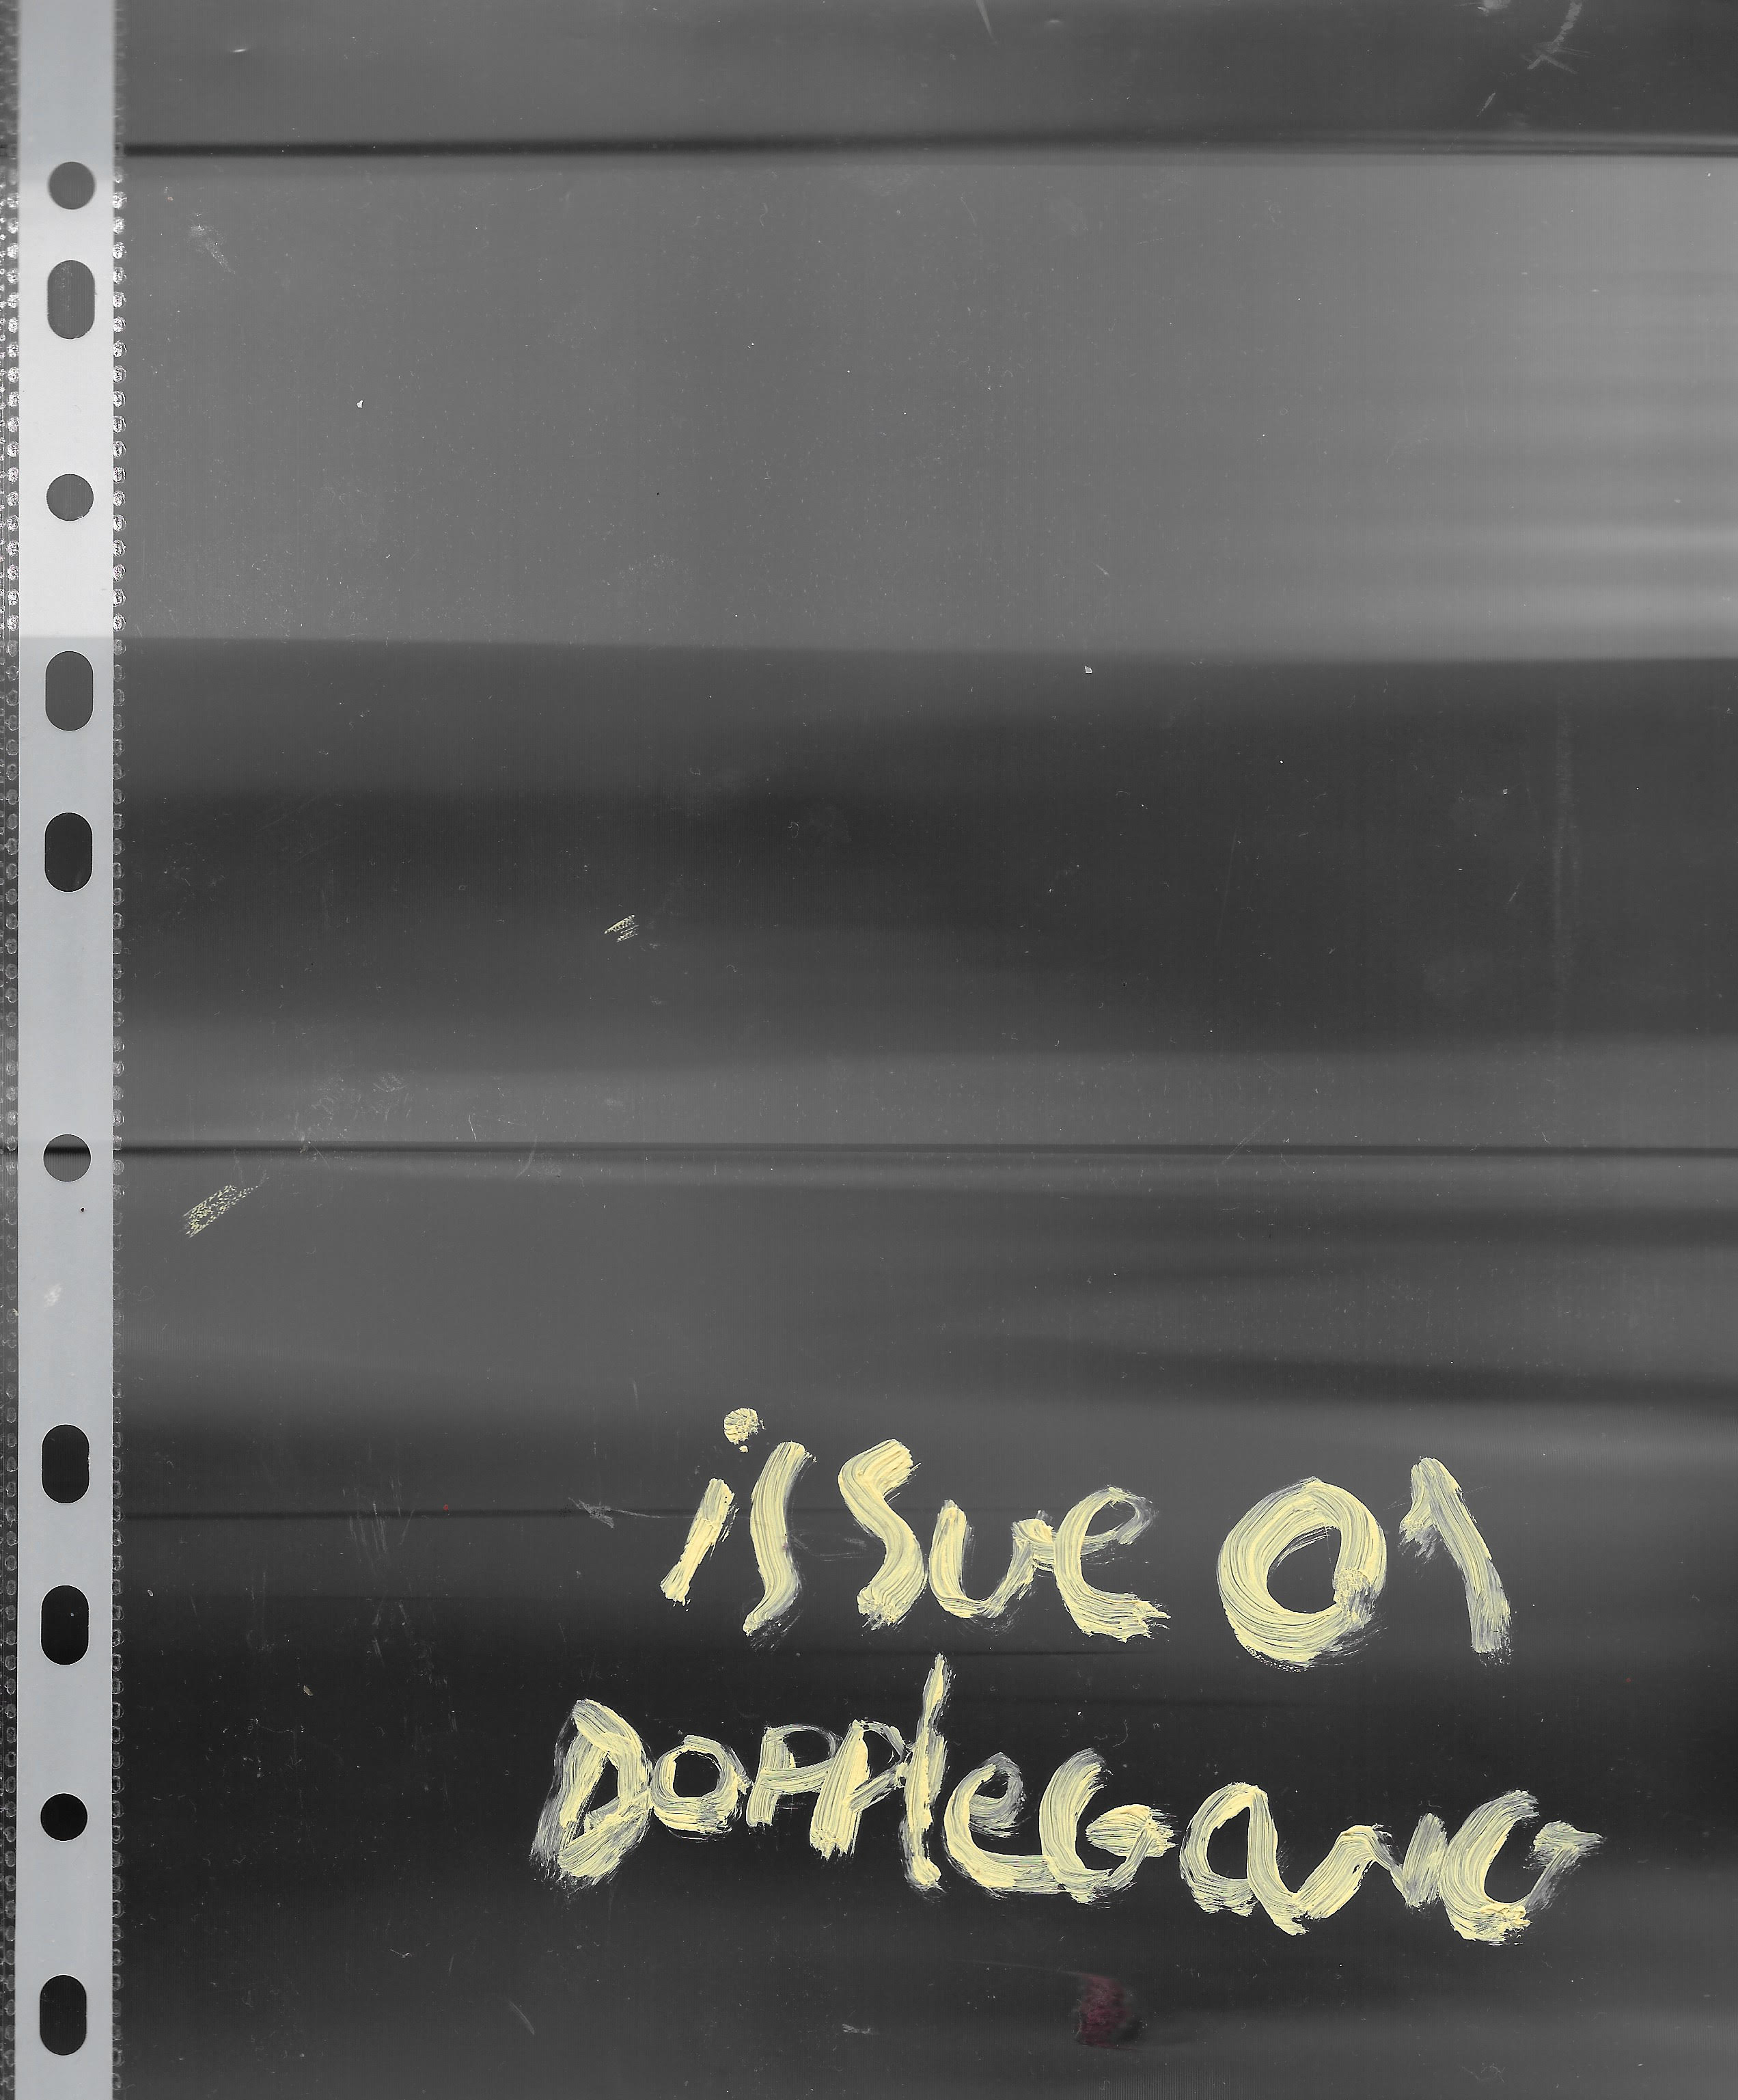 issue 01
DOPPleGANG